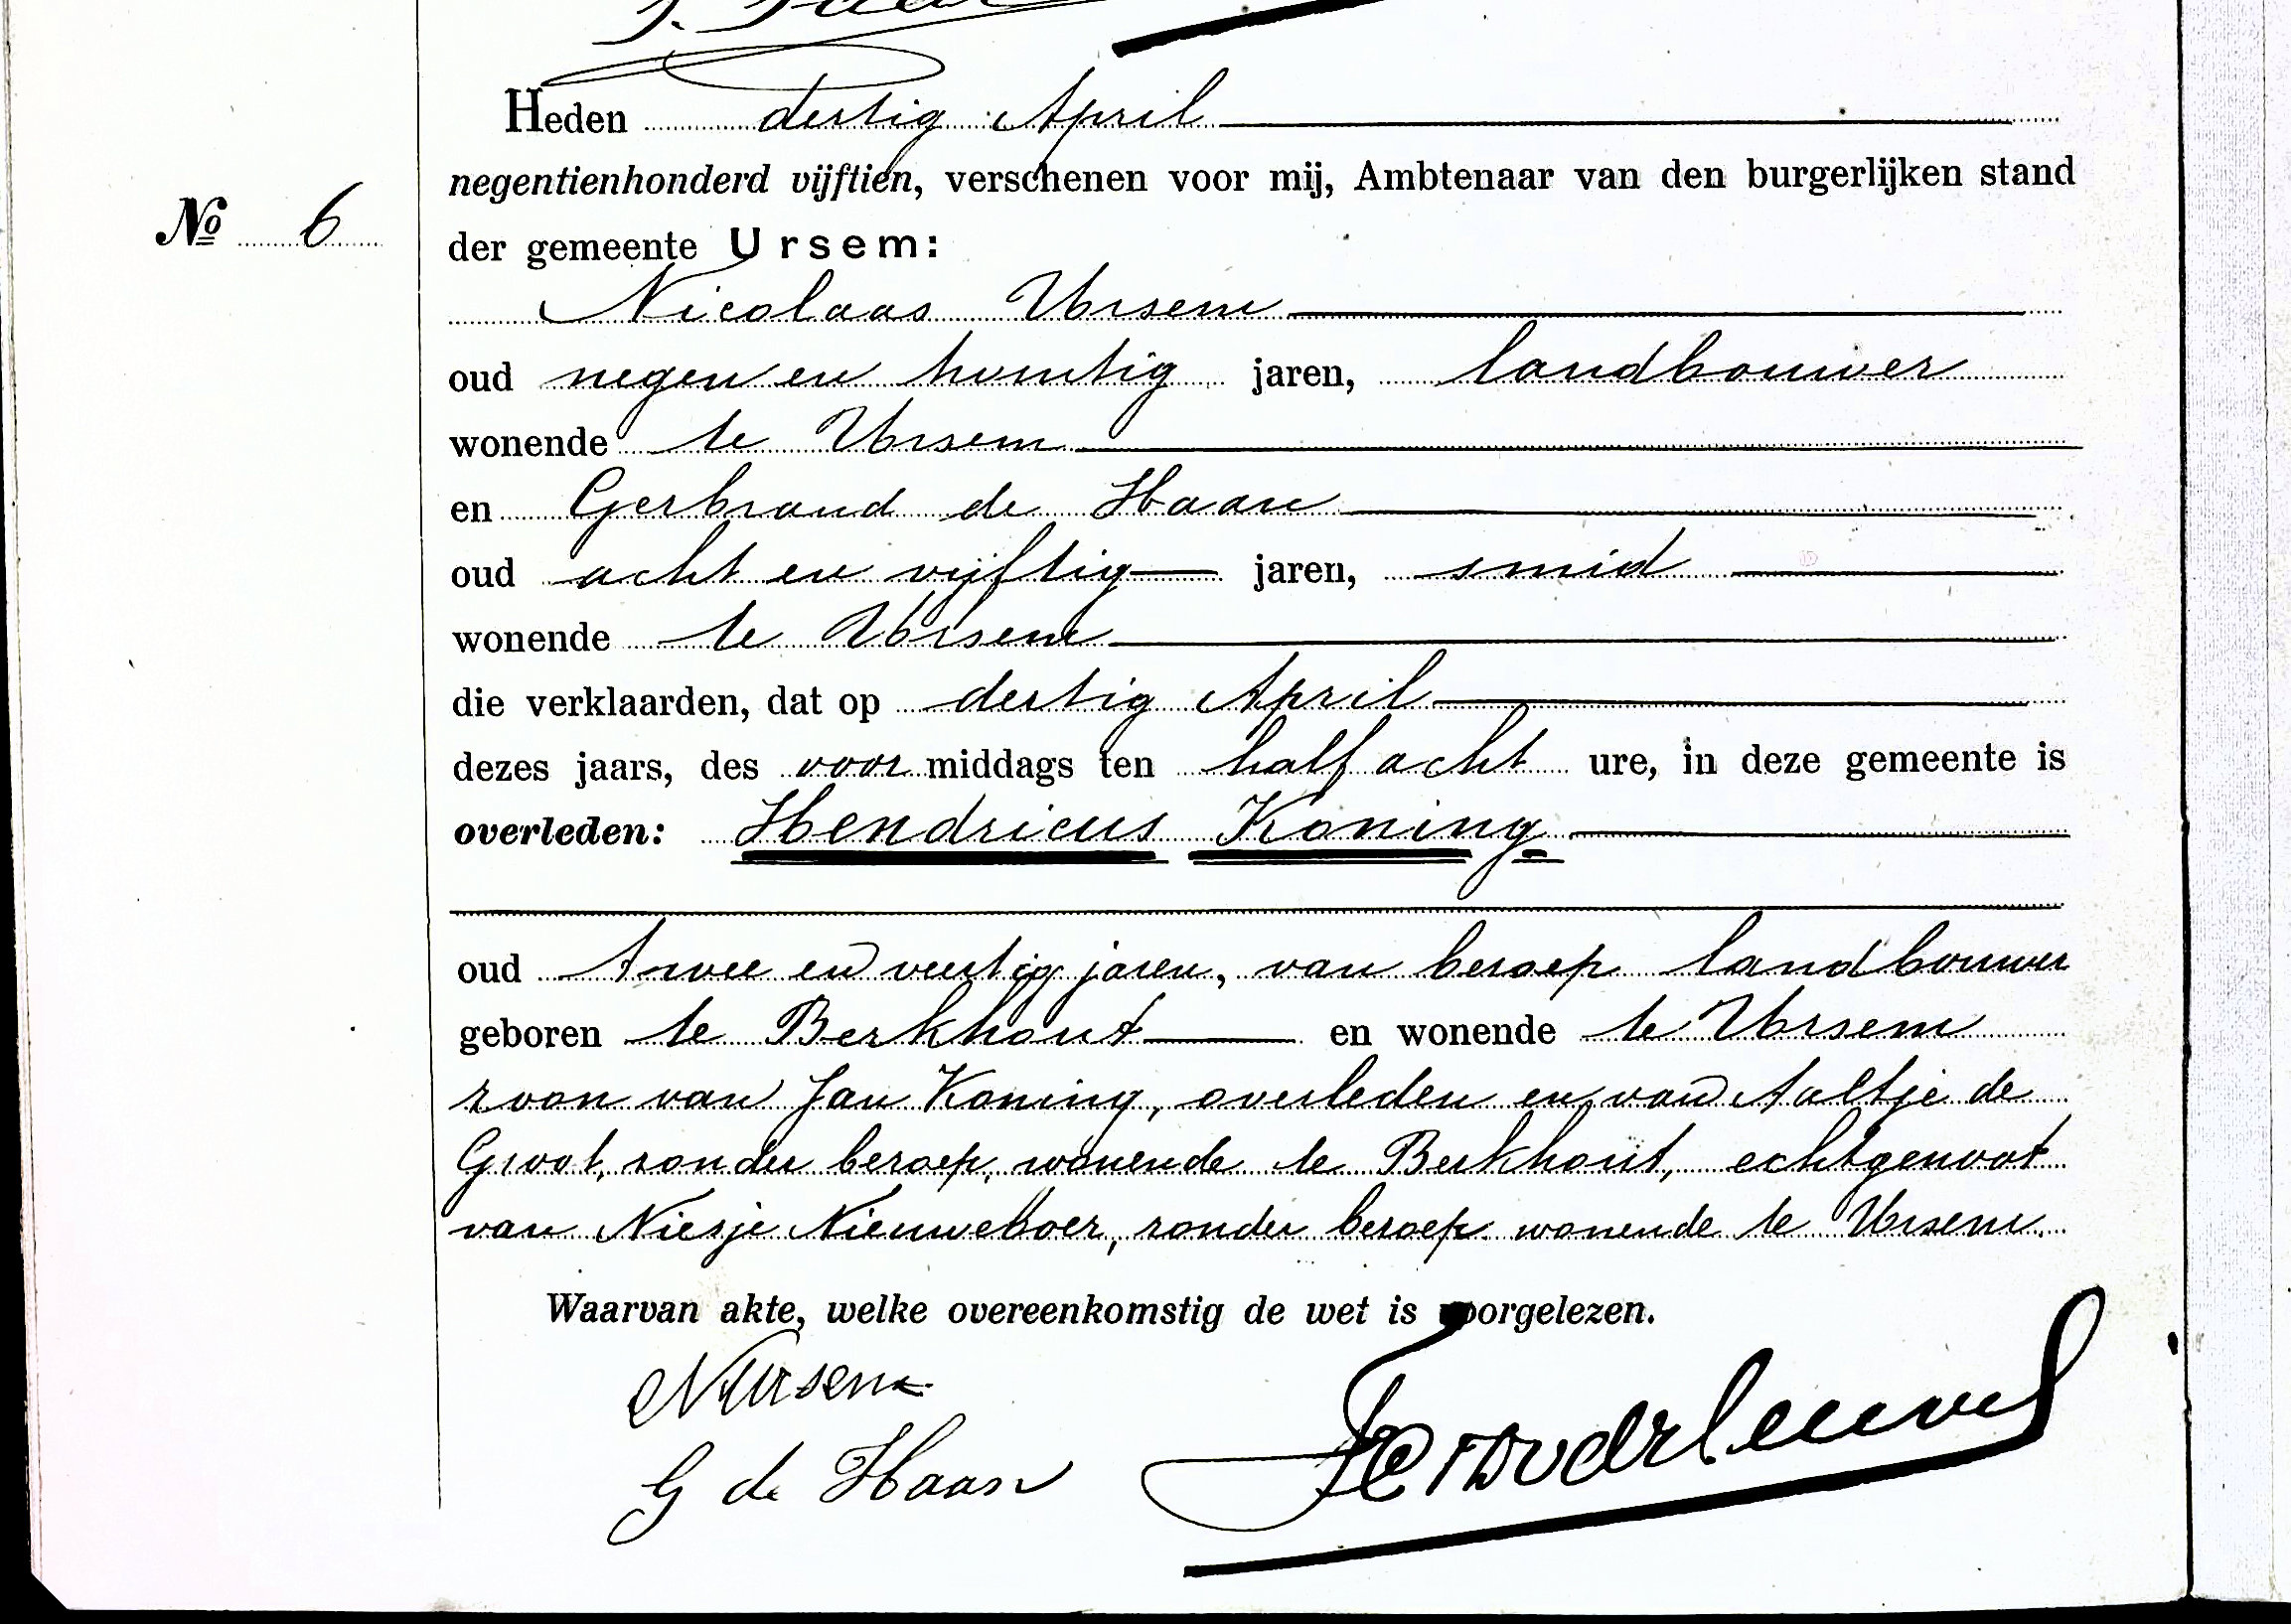 Heden dertig April
negentienhonderd vijftien, verschenen voor mij, Ambtenaar van den burgerlijken stand
No 6
der gemeente Ursem:
Nicolaas Ursem
oud negen en twintig jaren, landbouwer
wonende te Ursem
en Gerbrand de Haan
oud acht en vijftig jaren, smid
wonende te Ursem
die verklaarden, dat op dertig April
dezes jaars, des voor middags ten half acht ure, in deze gemeente is
overleden: Hendricus Koning
oud twee en veertig jaren, van beroep landbouwer
geboren te Berkhout en wonende te Ursem
zoon van Jan Koning, overleden en van Aaltje de
Groot, zonder beroep, wonende te Berkhout, echtgenoot
van Niesje Nieuweboer, zonder beroep wonende te Ursem.
Waarvan akte, welke overeenkomstig de wet is voorgelezen.
N Ursem
G de Haan